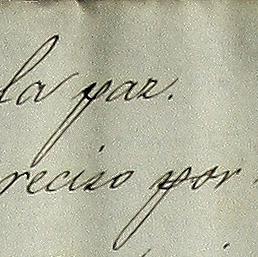 la paz.
reciso por